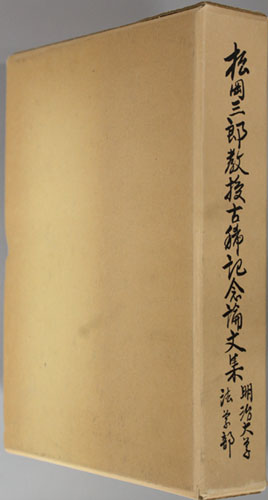 松岡三郎教授古稀記念論文集
明治大学
法学部